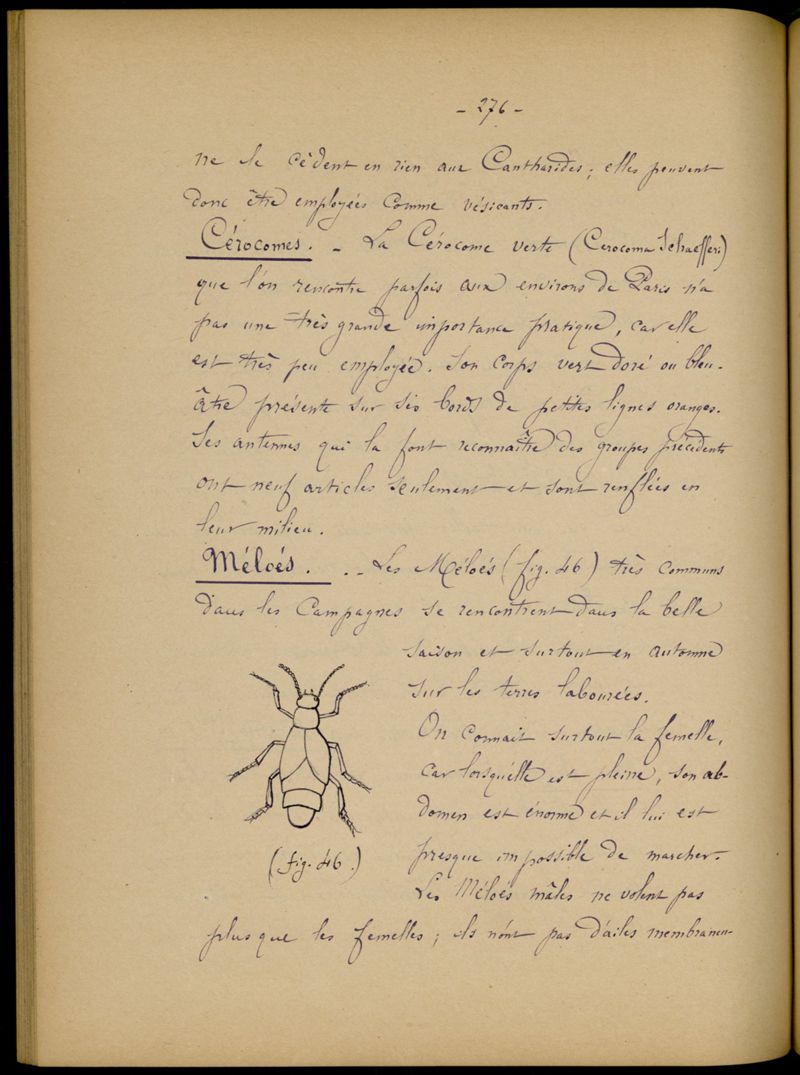 - 276 -
ne le cèdent en rien aux Cantharides ; elles peuvent
donc être employées comme vésicants.
Cérocomes. - La Cérocome verte (Cerocoma Schaefferi)
que l'on rencontre parfois aux environs de Paris n'a
pas une très grande importance pratique, car elle
est très peu employée. Son corps vert doré ou bleu-
âtre présente sur ses bords de petites lignes oranges.
Ses antennes qui la font reconnaître des groupes précédents
ont neuf articles seulement et sont renflées en
leur milieu.
Méloés. - Les Méloés (fig. 46) très communs
dans les Campagnes se rencontrent dans la belle
saison et surtout en automne
sur les terres labourées.
On connait surtout la femelle,
car lorsqu'elle est pleine, son ab-
domen est énorme et il lui est
presque impossible de marcher.
Les Méloés mâles ne volent pas
(fig. 46.)
plus que les femelles ; ils n'ont pas d'ailes membraneu-